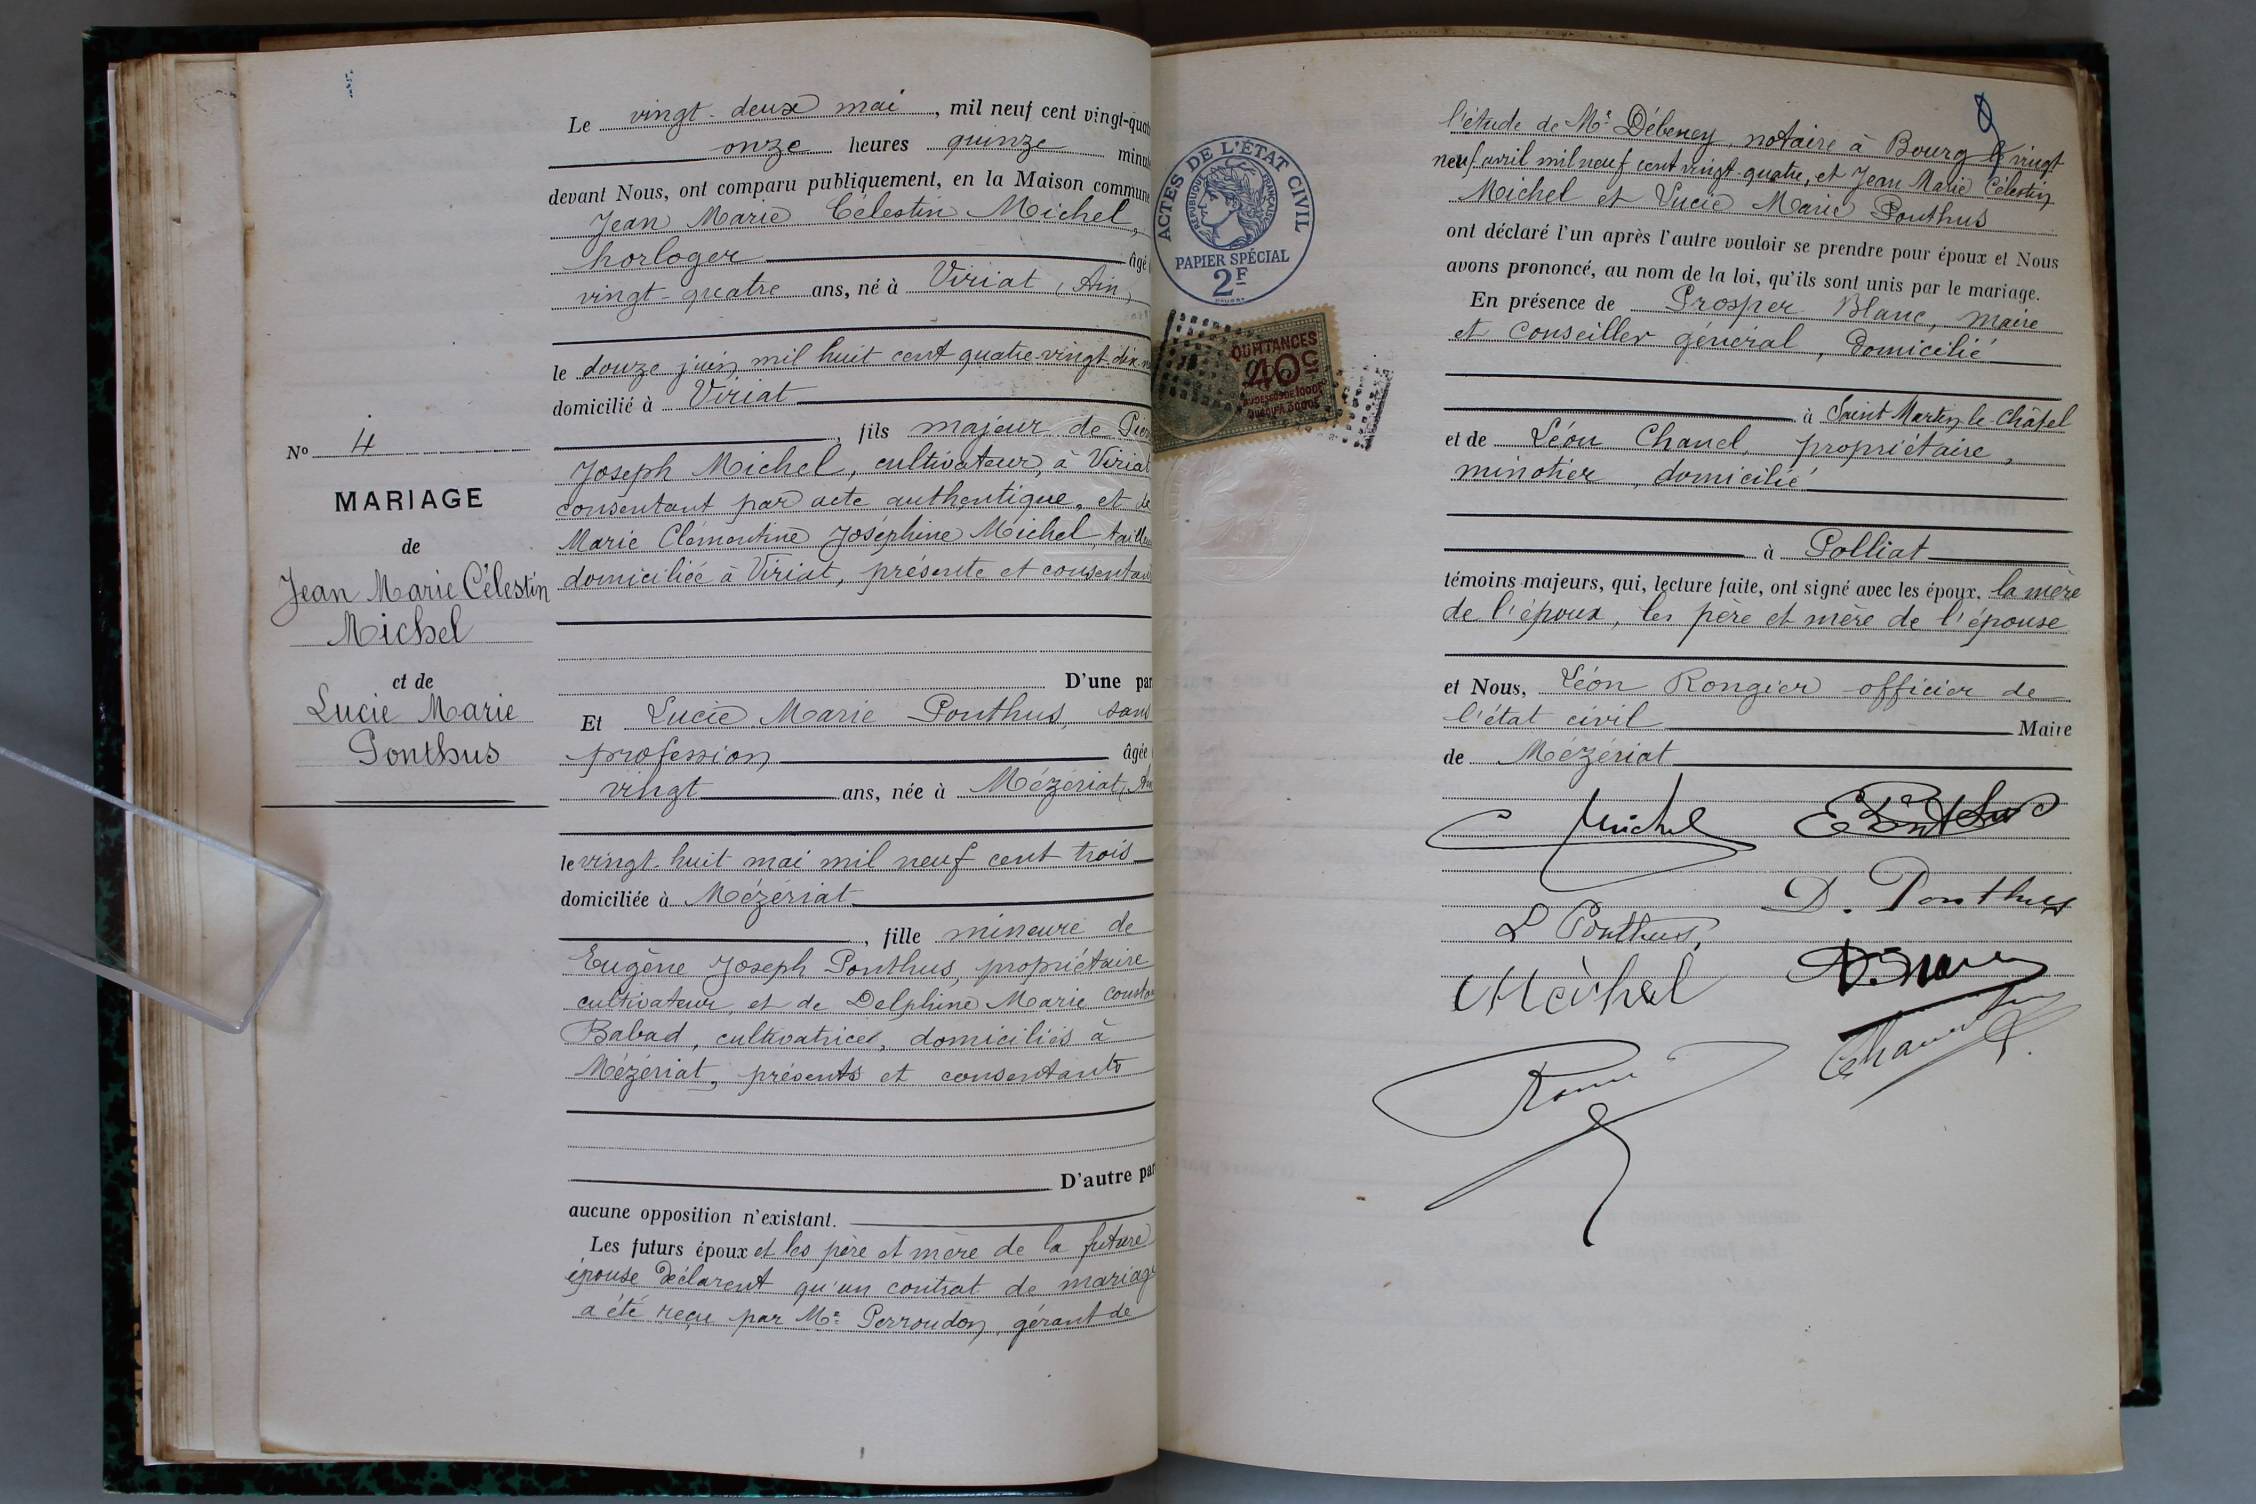 Le vingt-deux mai, mil neuf cent vingt-quat
onze heures quinze minut
devant Nous, ont comparu publiquement, en la Maison commune
Jean Marie Célestin Michel,
horloger âgé
vingt-quatre ans, né à Viriat (Ain)
le douze juin mil huit cent quatre-vingt-dix-n
domicilié à Viriat
, fils majeur de Pier
Joseph Michel, cultivateur, à Viriat
consentant par acte authentique, et de
Marie Clémentine Joséphine Michel, taill
domiciliée à Viriat, présente et consentan
D'une par
Et Lucie Marie Ponthus, sans
profession âgée
vingt ans, née à Mézériat, Ain
le vingt-huit mai mil neuf cent trois
domiciliée à Mézériat
, fille mineure de
Eugène Joseph Ponthus, propriétaire
cultivateur, et de Delphine Marie Consta
Babad, cultivatrice, domiciliés à
Mézériat, présents et consentants
D'autre par
aucune opposition n'existant.
Les futurs époux et les père et mère de la future
épouse déclarent qu'un contrat de mariage
a été reçu par Me Perroudon, gérant de
No 4
MARIAGE
de
Jean Marie Célestin
Michel
et de
Lucie Marie
Ponthus
ACTES DE L'ÉTAT CIVIL
RÉPUBLIQUE FRANÇAISE
PAPIER SPÉCIAL
2F
QUITTANCES
40c
AU-DESSUS DE 1000F
JUSQU'A 3000F
8
l'étude de Me Débeney, notaire à Bourg le vingt
neuf avril mil neuf cent vingt-quatre, et Jean Marie Célestin
Michel et Lucie Marie Ponthus
ont déclaré l'un après l'autre vouloir se prendre pour époux et Nous
avons prononcé, au nom de la loi, qu'ils sont unis par le mariage.
En présence de Prosper Blanc, maire
et conseiller général, domicilié
à Saint-Martin-le-Châtel
et de Léon Chanel, propriétaire,
minotier, domicilié
à Polliat
témoins majeurs, qui, lecture faite, ont signé avec les époux, la mère
de l'époux, les père et mère de l'épouse
et Nous, Léon Rongier officier de
l'état civil Maire
de Mézériat
C Michel E Ponthus
D. Ponthus
L Ponthus,
Michel